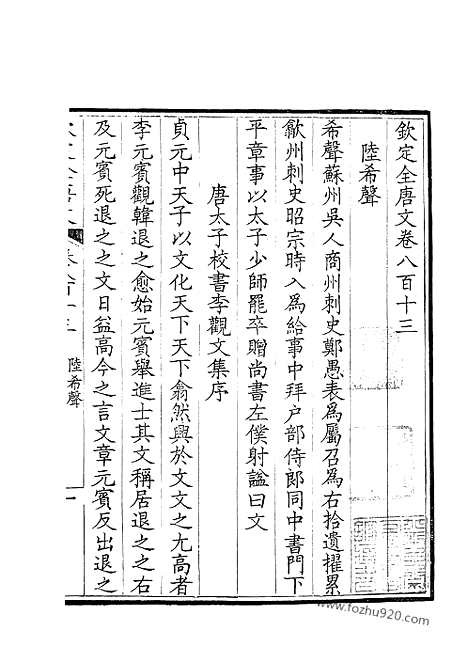 欽定全唐文卷八百十三
陸希聲
希聲蘇州吳人商州刺史鄭愚表為屬召為右拾遺擢累
歙州刺史昭宗時入為給事中拜戶部侍郎同中書門下
平章事以太子少師罷卒贈尚書左僕射謚曰文
唐太子校書李觀文集序
貞元中天子以文化天下天下翕然興於文文之尤高者
李元賓觀韓退之愈始元賓舉進士其文稱居退之之右
及元賓死退之之文日益高今之言文章元賓反出退之
陸希聲
一
www.fozhu920.com